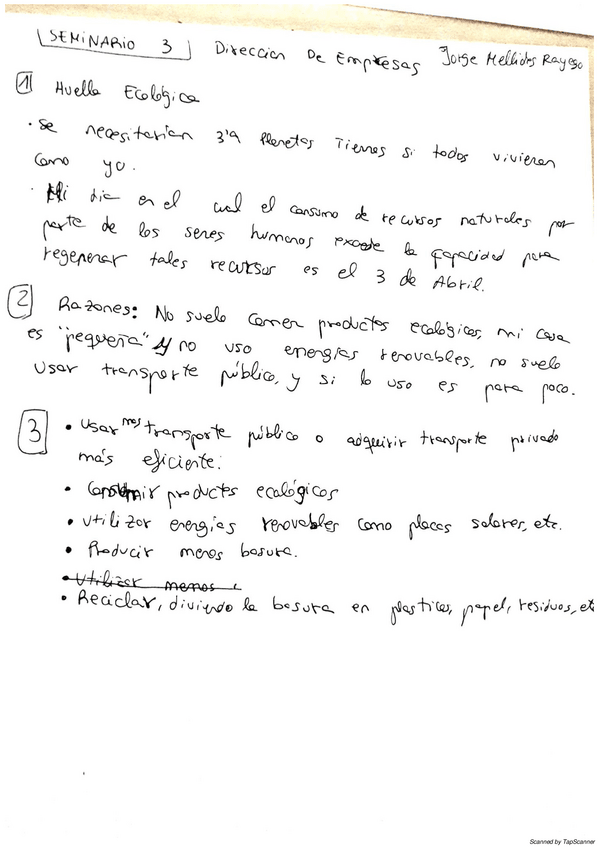 SEMINARIO 3 Direccion De Empresas Jorge Mellides Rayoso
1 Huella Ecológica
• Se necesitarian 3'9 Planetas Tierras si todos vivieran
como yo.
• Mi dia en el cual el consumo de recursos naturales por
parte de los seres humanos excede la capacidad para
regenerar tales recursos es el 3 de Abril.
2 Razones: No suelo comer productos ecológicos, mi casa
es "pequeña" y no uso energías renovables, no suelo
usar transporte público, y si lo uso es para poco.
3 • Usar mas transporte público o adquirir transporte privado
más eficiente.
• Consumir productos ecológicos
• Utilizar energías renovables como placas solares, etc.
• Producir menos basura.
• Utilizar menos
• Reciclar, diviendo la basura en plasticos, papel, residuos, etc
Scanned by TapScanner